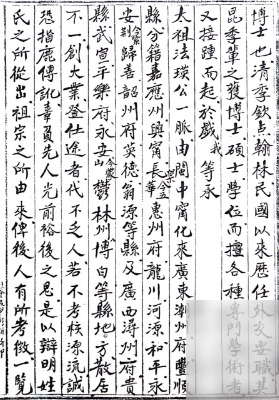 博士也清季欽点翰林民國以來歷任外交要職其
昆季輩之獲博士碩士學位而擅各種專門學術者
又接踵而起於戲我等承
太祖法瑛公一脈由閩中甯化來廣東潮州府豐順
縣分籍嘉應州興甯長樂五華惠州府龍川河源和平永
安紫金歸善韶州府英德翁源等縣及廣西潯州府貴
縣武宣平樂府永安山鬱林州博白等縣地方散居
不一創大業登仕途者代不乏人若不考核源流誠
恐指鹿傳訛辜負先人光前裕後之思是以辯明姓
氏之所從出祖宗之所由來俾後人有所考徵一覽